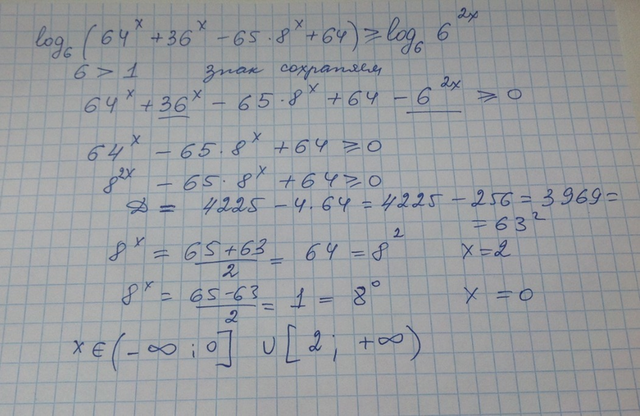 log₆(64ˣ + 36ˣ − 65·8ˣ + 64) ≥ log₆ 6²ˣ
6 > 1 знак сохраняем
64ˣ + 36ˣ − 65·8ˣ + 64 − 6²ˣ ≥ 0
64ˣ − 65·8ˣ + 64 ≥ 0
8²ˣ − 65·8ˣ + 64 ≥ 0
D = 4225 − 4·64 = 4225 − 256 = 3969 =
= 63²
8ˣ = (65+63)/2 = 64 = 8² x = 2
8ˣ = (65−63)/2 = 1 = 8⁰ x = 0
x ∈ (−∞; 0] ∪ [2; +∞)